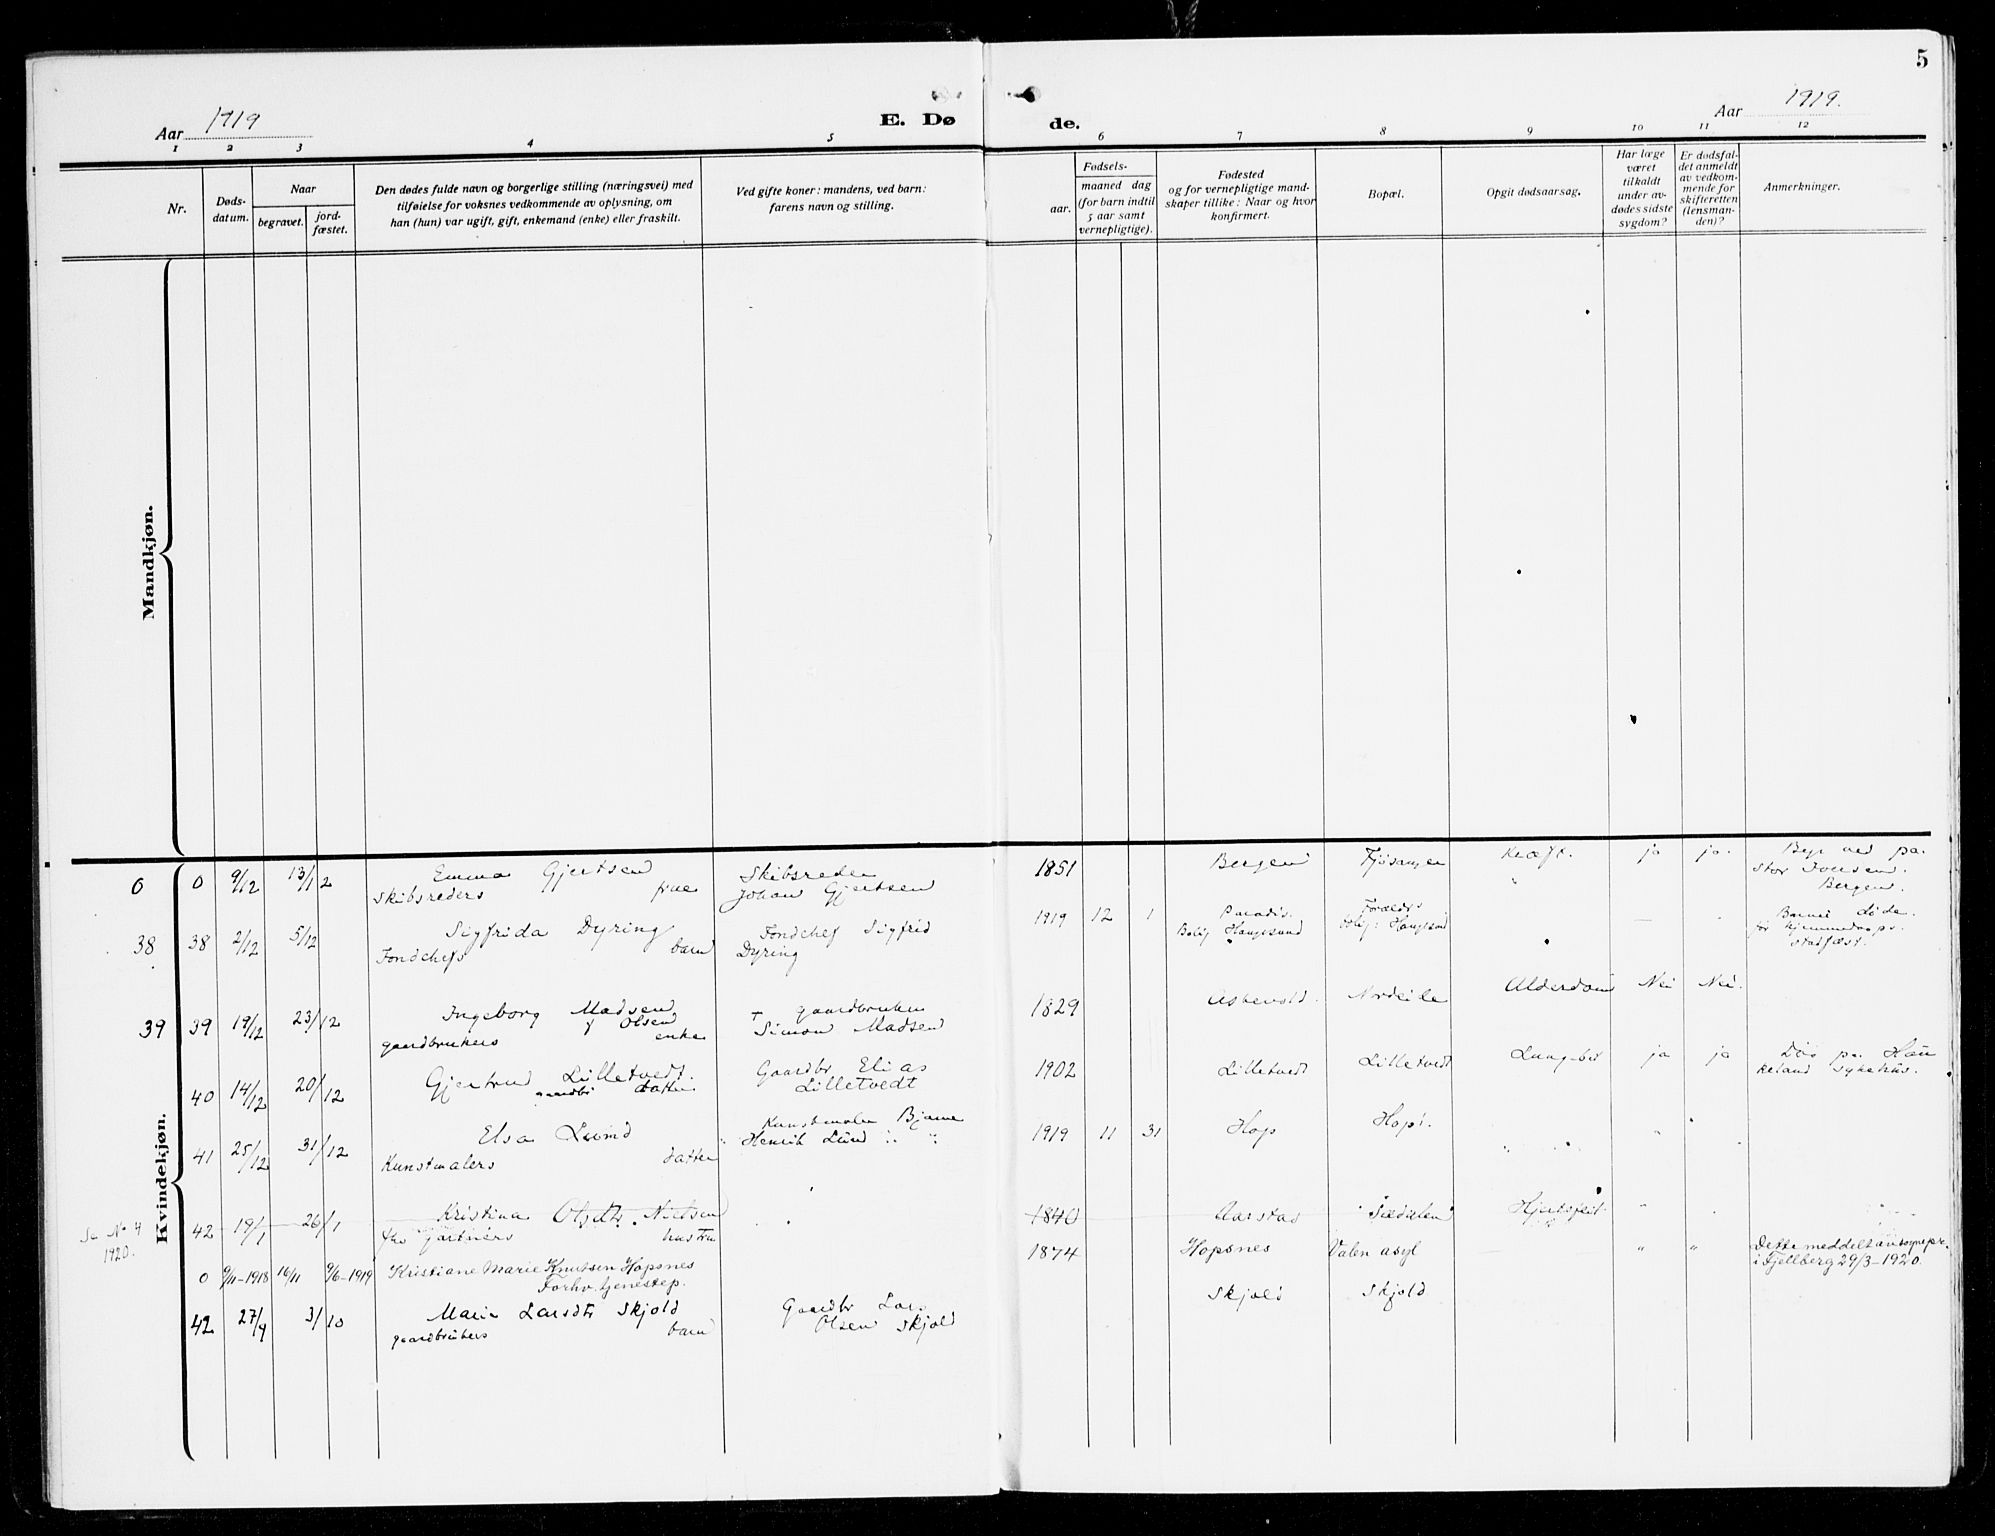 5
Aar 1919
E. Dø
de.
Aar 1919.
1 2 3 4 5 6 7 8 9 10 11 12
Nr.
Døds-
datum.
Naar
begravet.
jord-
fæstet.
Den dødes fulde navn og borgerlige stilling (næringsvei) med
tilføielse for voksnes vedkommende av oplysning, om
han (hun) var ugift, gift, enkemand (enke) eller fraskilt.
Ved gifte koner: mandens, ved barn:
farens navn og stilling.
Fødsels-
aar.
maaned dag
(for barn indtil
5 aar samt
vernepligtige).
Fødested
og for vernepligtige mand-
skaper tillike: Naar og hvor
konfirmert.
Bopæl.
Opgit dødsaarsag.
Har læge
været
tilkaldt
under av-
dødes sidste
sygdom?
Er dødsfal-
det anmeldt
av vedkom-
mende for
skifteretten
(lensman-
den)?
Anmerkninger.
Mandkjøn.
Kvindekjøn.
0 0 9/12 13/12 Emma Gjertsen Skibsreder 1851 Bergen Kræft. ja ja.
Skibsreders frue Johan Gjertsen
Bergen.
38 38 2/12 5/12 Sigfrida Dyring Fondchef Sigfrid 1919 12 1 Paradis.
Fondchefs barn Dyring Bolig Haugesund Bolig: Haugesund
hjemmedaaps.
stadfæst.
39 39 19/12 23/12 Ingeborg Madsen + gaardbruker 1829 Alderdom Nei Nei.
f Olsen Simon Madsen
gaardbrukers enke
40 14/12 20/12 Gjertrud Lilletvedt. Gaardbr Elias 1902 Lilletvedt Lilletvedt ja ja Död paa Hau
gaardbr datter Lilletvedt keland sykehus.
41 25/12 31/12 Elsa Lund Kunstmaler Bjarne 1919 11 31 Hop Hop.
Kunstmalers datter Henrik Lund
Se No 4
1920.
42 19/1 26/1 Kristina Olsdtr. Nielsen 1840 Aarstad Sædalen Hjertefeil.
fhv Gartners hustru
0 9/11-1918 16/11 9/6-1919 Kristiane Marie Knutsen Hopsnes 1874 Hopsnes Valen asyl " " Dette meddelt av sognepr.
Forhv. tjenestep. i Fjellberg 29/3-1920.
42 27/9 3/10 Marie Larsdtr Skjold Gaardbr Lars Skjold Skjold
gaardbrukers barn Olsen Skjold